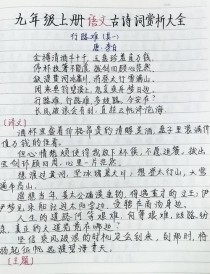 九年级上册语文古诗词赏析大全
行路难(其一)
唐·李白
金樽清酒斗十千,玉盘珍羞直万钱。
停杯投箸不能食,拔剑四顾心茫然。
欲渡黄河冰塞川,将登太行雪满山。
闲来垂钓碧溪上,忽复乘舟梦日边。
行路难,行路难,多歧路,今安在?
长风破浪会有时,直挂云帆济沧海。
(译文)
酒杯里盛着价格昂贵的清醇美酒,盘子里装满价
值万钱的佳肴。
但心情愁烦使得我放下杯筷,不愿进餐。拔出
宝剑环顾四周,心里一片茫然。
想渡过黄河,坚冰堵塞大川,想登太行山,大雪
遍布高山。
遥想当年,姜太公磻溪垂钓,得遇重才的文王,伊
尹乘舟梦日,受聘在商汤身边。
人生的道路何等艰难,何等艰难,歧路纷
杂,真正的大道究竟在哪边?
坚信乘风破浪的时机定会到来,到那时,将
扬起征帆远渡碧海青天。
(主题)